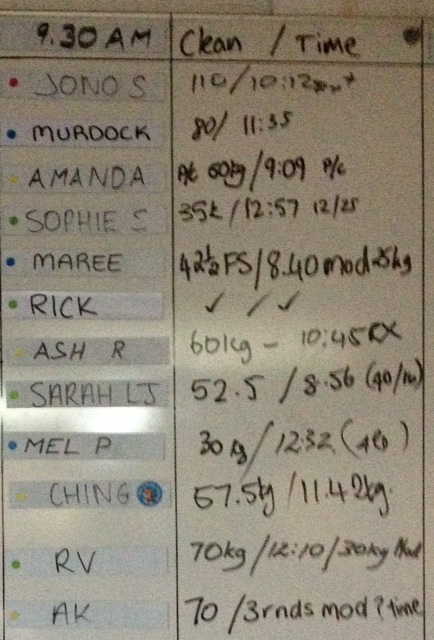 9.30 AM Clean / Time
JONO S 110 / 10:12
MURDOCK 80/ 11:35
AMANDA 60kg / 9:09 P/c
SOPHIE S 35k / 12:57 12/25
MAREE 42½ FS / 8.40 mod 25kg
RICK ✓ / ✓
ASH R 60kg - 10:45 RX
SARAH LJ 52.5 / 8.56
MEL P 30 kg / 12:32
CHING 57.5kg / 11.42kg.
RV 70kg / 12:10 / 30kg
AK 70 / 3rnds mod ? time